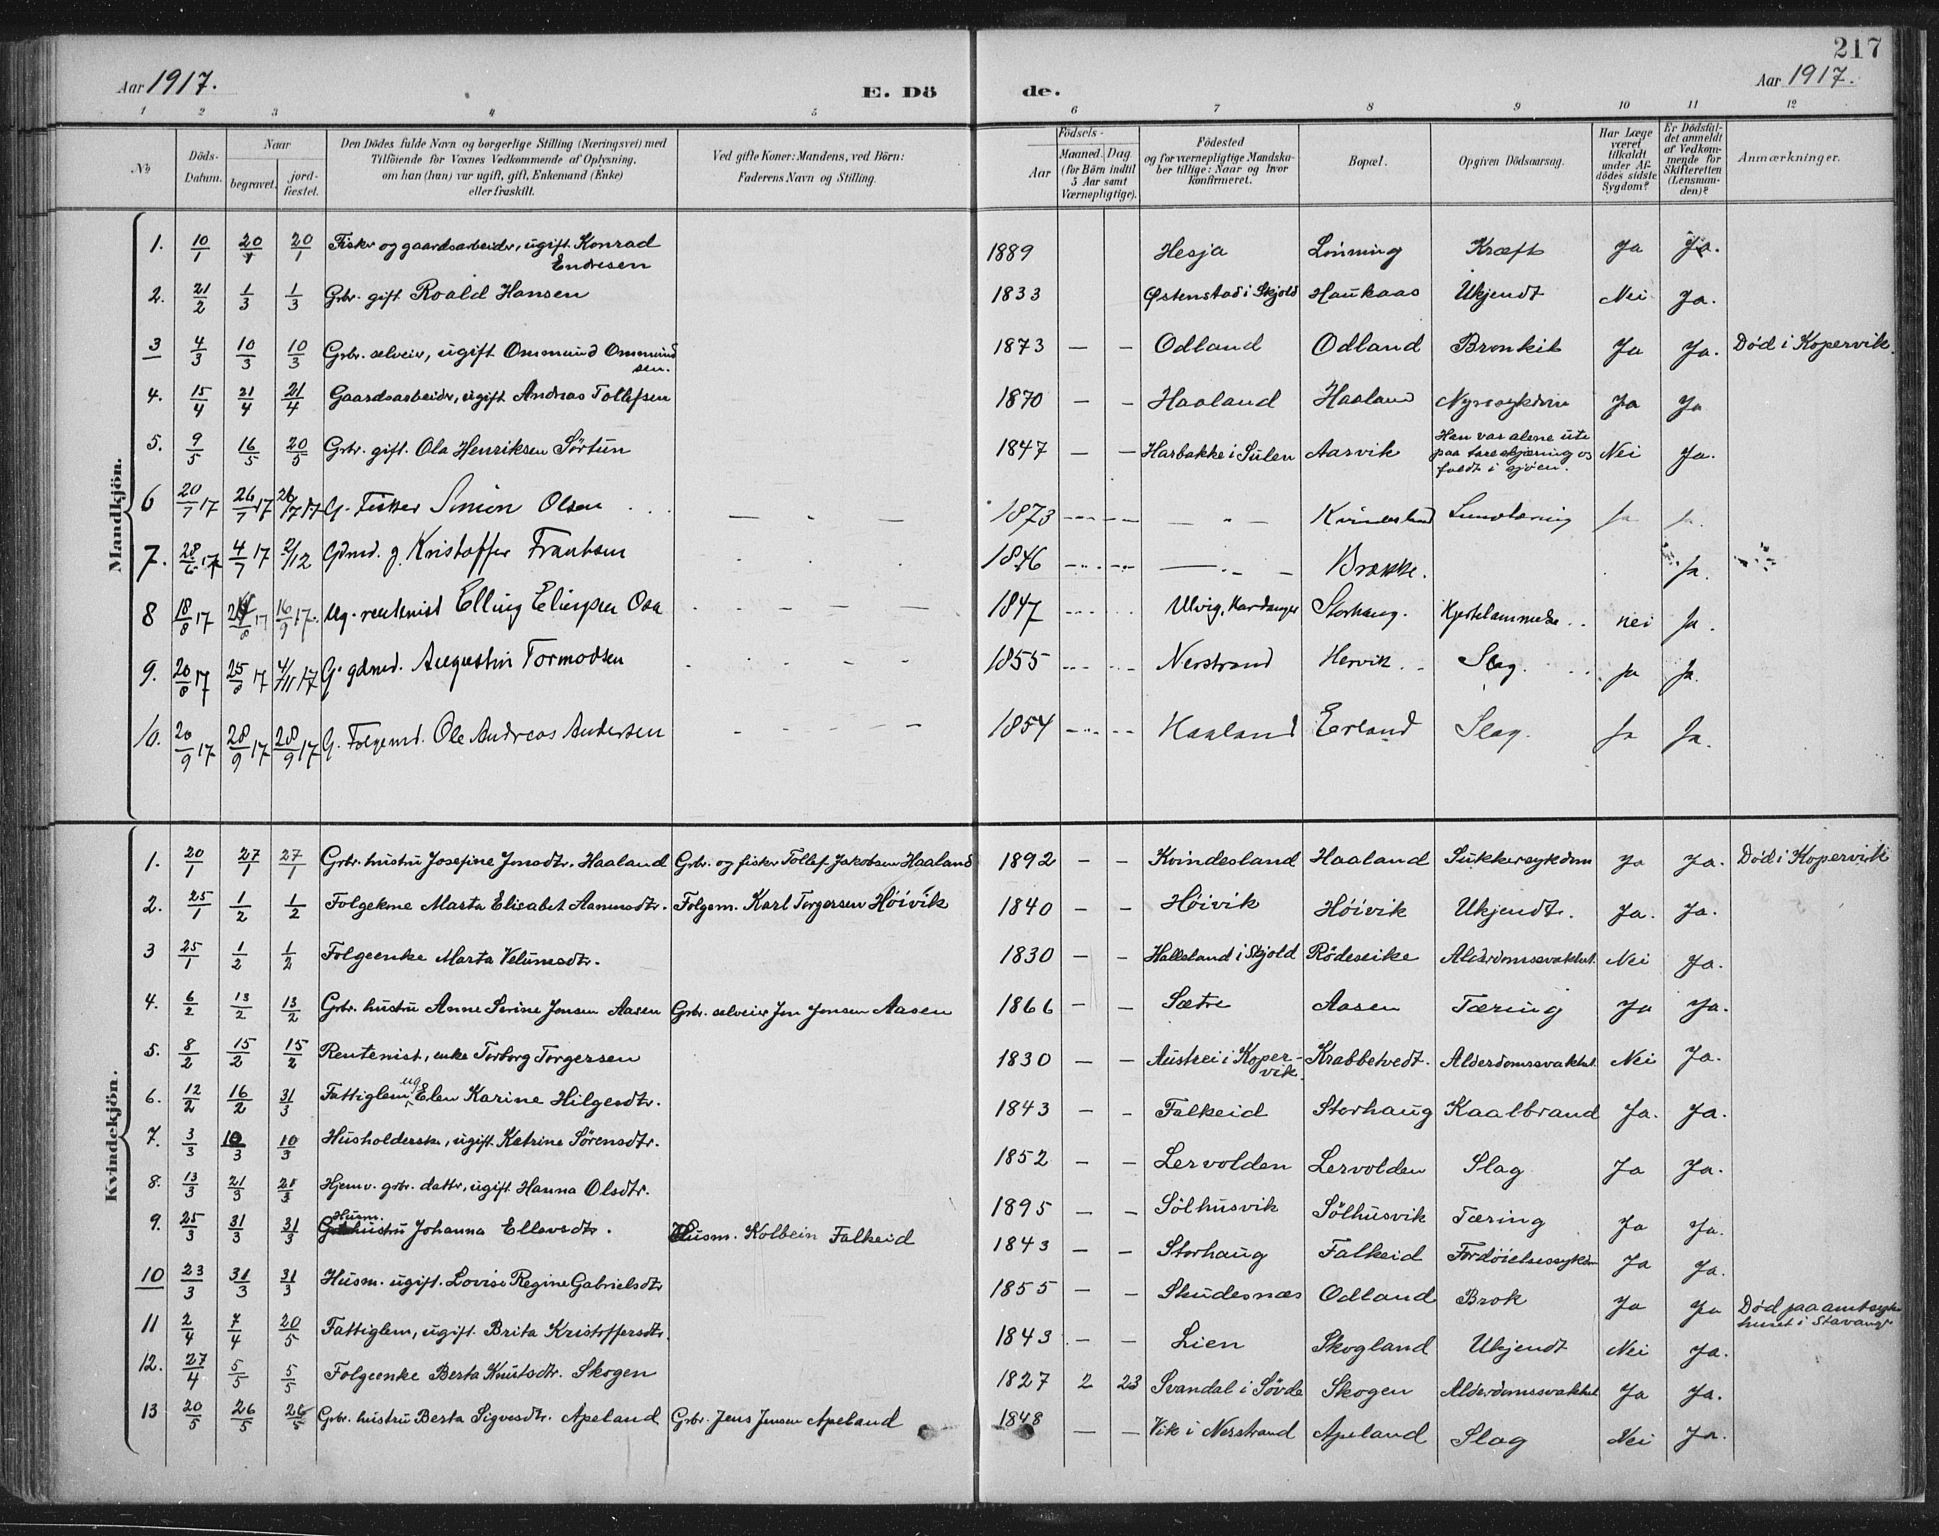 217
Aar 1917. E. Dö de. Aar 1917.
1 2 3 4 5 6 7 8 9 10 11 12
No
Döds-Datum.
Naar
begravet.
jord-fæstet.
Den Dödes fulde Navn og borgerlige Stilling (Næringsvei) med
Tilföiende for Voxnes Vedkommende af Oplysning,
om han (hun) var ugift, gift, Enkemand (Enke)
eller fraskilt.
Ved gifte Koner: Mandens, ved Börn:
Faderens Navn og Stilling.
Födsels-
Aar
Maaned. Dag.
(for Börn indtil
5 Aar samt
Værnepligtige).
Födested
og for værnepligtige Mandska-
ber tillige: Naar og hvor
konfirmeret.
Bopæl.
Opgiven Dödsaarsag.
Har Læge
været
tilkaldt
under Af-
dödes sidste
Sygdom?
Er Dödsfal-
det anmeldt
af Vedkom-
mende for
Skifteretten
(Lensman-
den)?
Anmærkninger.
Mandkjön.
1. 10/1 20/1 20/1 Fisker og gaardsarbeider, ugift Konrad Endresen 1889 Hesja Lönning Kræft Ja Ja.
2. 21/2 1/3 1/3 Grbr. gift. Roald Hansen 1833 Østenstad i Skjold Haukaas Ukjendt Nei Ja.
3 4/3 10/3 10/3 Grbr. selveier, ugift Ommund Ommundsen. 1873 — — Odland Odland Bronkit Ja Ja. Död i Kopervik.
4. 15/4 21/4 21/4 Gaardsarbeider, ugift Andreas Tollefsen 1870 — — Haaland Haaland Nyresykdom Ja Ja
5. 9/5 16/5 20/5 Grbr. gift. Ola Henriksen Sörtun 1847 — — Harbakke i Sulen Aarvik Han var alene ute paa tareskjæring og faldt i sjöen. Nei Ja.
6 20/7 17 26/7 17 26/7 17 G. Fisker Simon Olsen 1873 — " — Kvindesland Ja Ja.
7. 28/6 17 4/7 17 2/12 Gdmd. g. Kristoffer Frantsen 1846 Brække. Ja.
8 18/8 17 17 16/9 17. Ug. rentenist Elling Elingsen Osa 1847 Ulvig, Hardanger Storhaug. nei Ja.
9. 20/8 17 25/8 17 4/11 17 G. gdmd. Augustin Tormodsen 1855 Nerstrand Hervik Slag. Ja Ja.
10. 20/9 17 28/9 17 28/9 17 G. Folgemd. Ole Andreas Andersen 1854 Haaland Erland Slag. Ja Ja.
Kvindekjön.
1. 20/1 27/1 27/1 Grbr. hustru Josefine Jonsdtr. Haaland Grbr. og fisker Tollef Jakobsen Haaland 1892 — — Kvindesland Haaland Sukkersykdom Ja Ja. Död i Kopervik
2. 25/1 1/2 1/2 Folgekone Marta Elisabet Aamundtr. Folgem. Karl Torgersen Höivik 1840 — — Höivik Höivik Ukjendt. Ja. Ja.
3 25/1 1/2 1/2 Folgeenke Marta Velumsdtr. 1830 — Halleland i Skjold Rödeseike Alderdomssvakhet. Nei Ja.
4. 6/2 13/2 13/2 Grbr. hustru Anne Serine Jonsen Aasen Grbr. selveier Jon Jonsen Aasen 1866 — — Sætre Aasen Tæring Ja Ja.
5. 8/2 15/2 15/2 Rentenist, enke Torborg Torgersen 1830 — — Austrei i Kopervik. Krabbetvedt. Alderdomssvakhet Nei Ja.
6. 12/2 16/2 31/3 Fattiglem ug Elen Karine Hilgesdtr. 1843 — — Falkeid Storhaug Kaalbrand Ja. Ja.
7. 3/3 10/3 10/3 Husholderske, ugift Katrine Sörensdtr. 1852 — — Lervolden Lervolden Slag Ja Ja.
8. 13/3 21/3 21/3 Hjemv. grbr. datter, ugift Hanna Olsdtr. 1895 — — Sölhusvik Sölhusvik Tæring Ja Ja.
9. 25/3 31/3 31/3 Husm. hustru Johanna Ellevsdtr. Husm. Kolbein Falkeid 1843 — — Storhaug Falkeid Fordöielsessykdom Ja Ja.
10 23/3 31/3 31/3 Husm. ugift. Lovise Regine Gabrielsdtr 1855 — — Skudesnæs Odland Brok Ja Ja Död paa amtsykehuset i Stavanger
11 2/4 7/4 20/5 Fattiglem, ugift. Brita Kristoffersdtr. 1843 — — Lien Skogland Ukjendt Nei Ja.
12. 27/4 5/5 5/5 Folgeenke Berta Knutsdtr. Skogen 1827 2 23 Svandal i Sövde Skogen Alderdomssvakhet Ja Ja.
13 20/5 26/5 26/5 Grbr. hustru Berta Sigvesdtr. Apeland Grbr. Jens Jensen Apeland 1848 — — Vik i Nerstrand Apeland Slag Nei Ja.